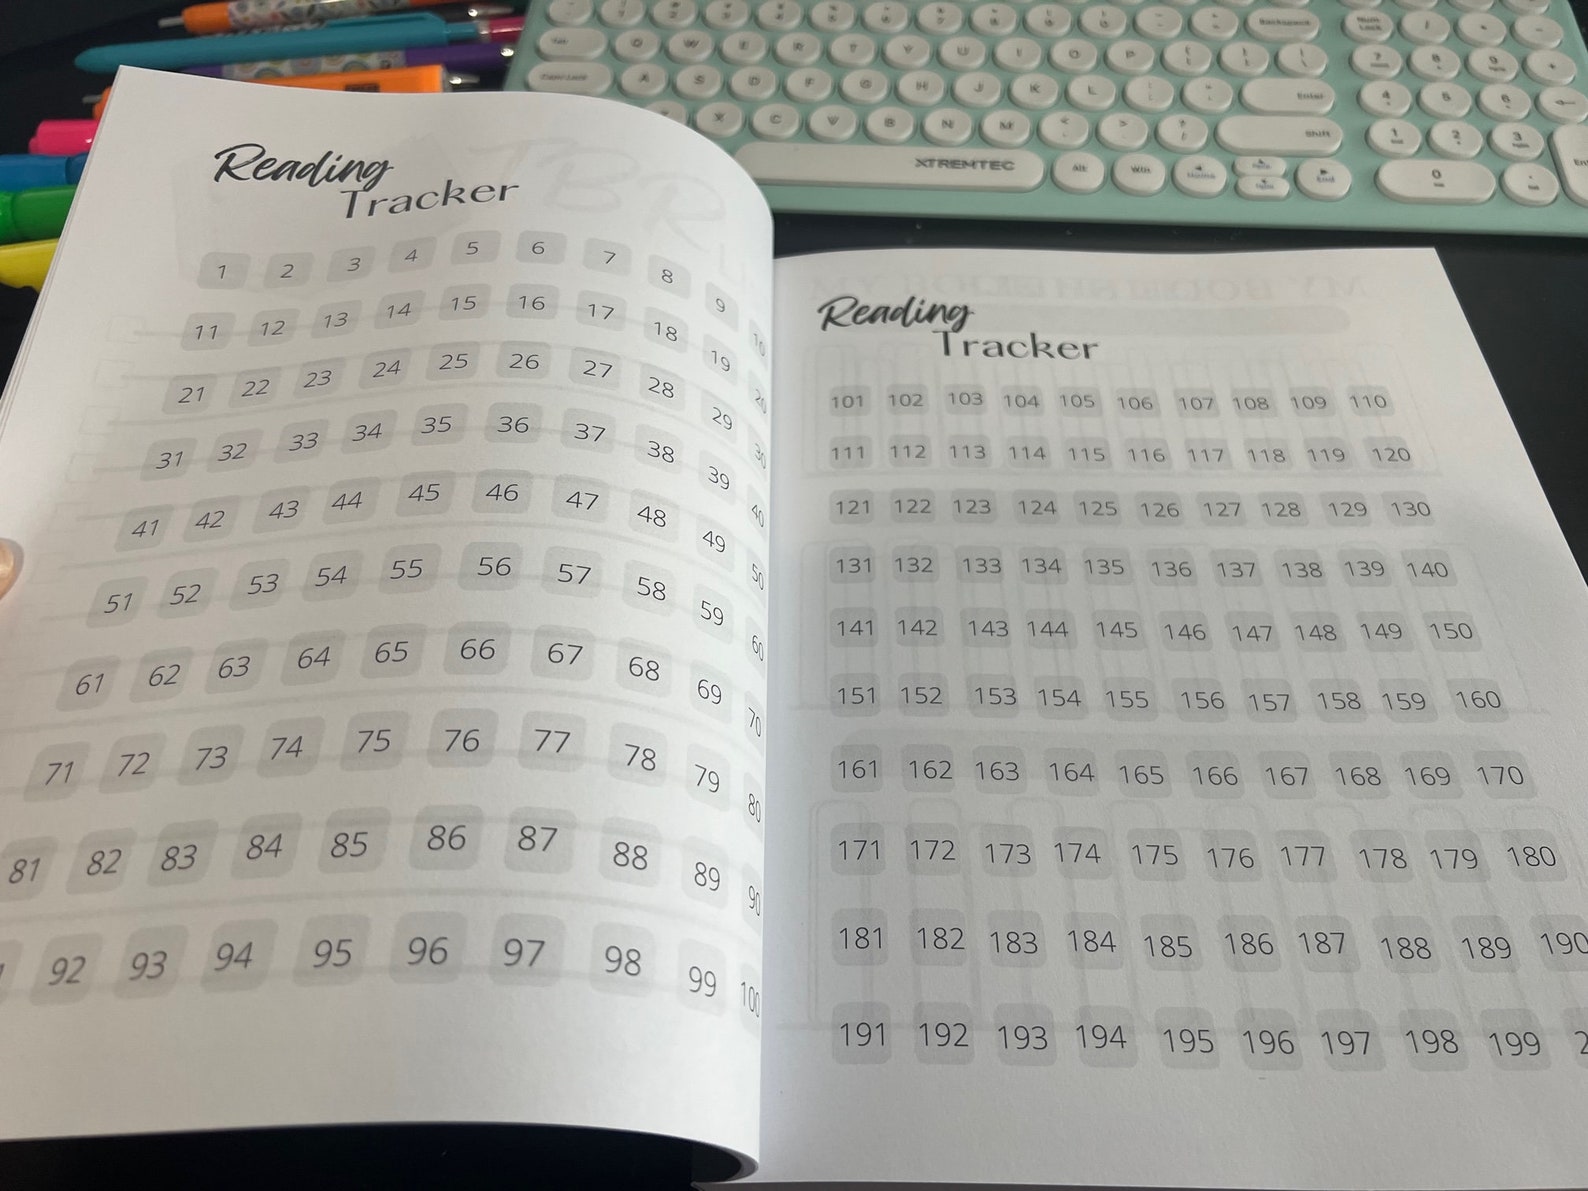 Reading
Tracker
1 2 3 4 5 6 7 8 9 10
11 12 13 14 15 16 17 18 19 20
21 22 23 24 25 26 27 28 29 30
31 32 33 34 35 36 37 38 39 40
41 42 43 44 45 46 47 48 49 50
51 52 53 54 55 56 57 58 59 60
61 62 63 64 65 66 67 68 69 70
71 72 73 74 75 76 77 78 79 80
81 82 83 84 85 86 87 88 89 90
92 93 94 95 96 97 98 99 100
Reading
Tracker
101 102 103 104 105 106 107 108 109 110
111 112 113 114 115 116 117 118 119 120
121 122 123 124 125 126 127 128 129 130
131 132 133 134 135 136 137 138 139 140
141 142 143 144 145 146 147 148 149 150
151 152 153 154 155 156 157 158 159 160
161 162 163 164 165 166 167 168 169 170
171 172 173 174 175 176 177 178 179 180
181 182 183 184 185 186 187 188 189 190
191 192 193 194 195 196 197 198 199
Backspace Num Lock
Q W E R T Y U I O P 7 8 9
A S D F G H J K L Enter 4 5 6
X C V B N M Shift 1 2 3
XTREMTEC Alt Win End 0